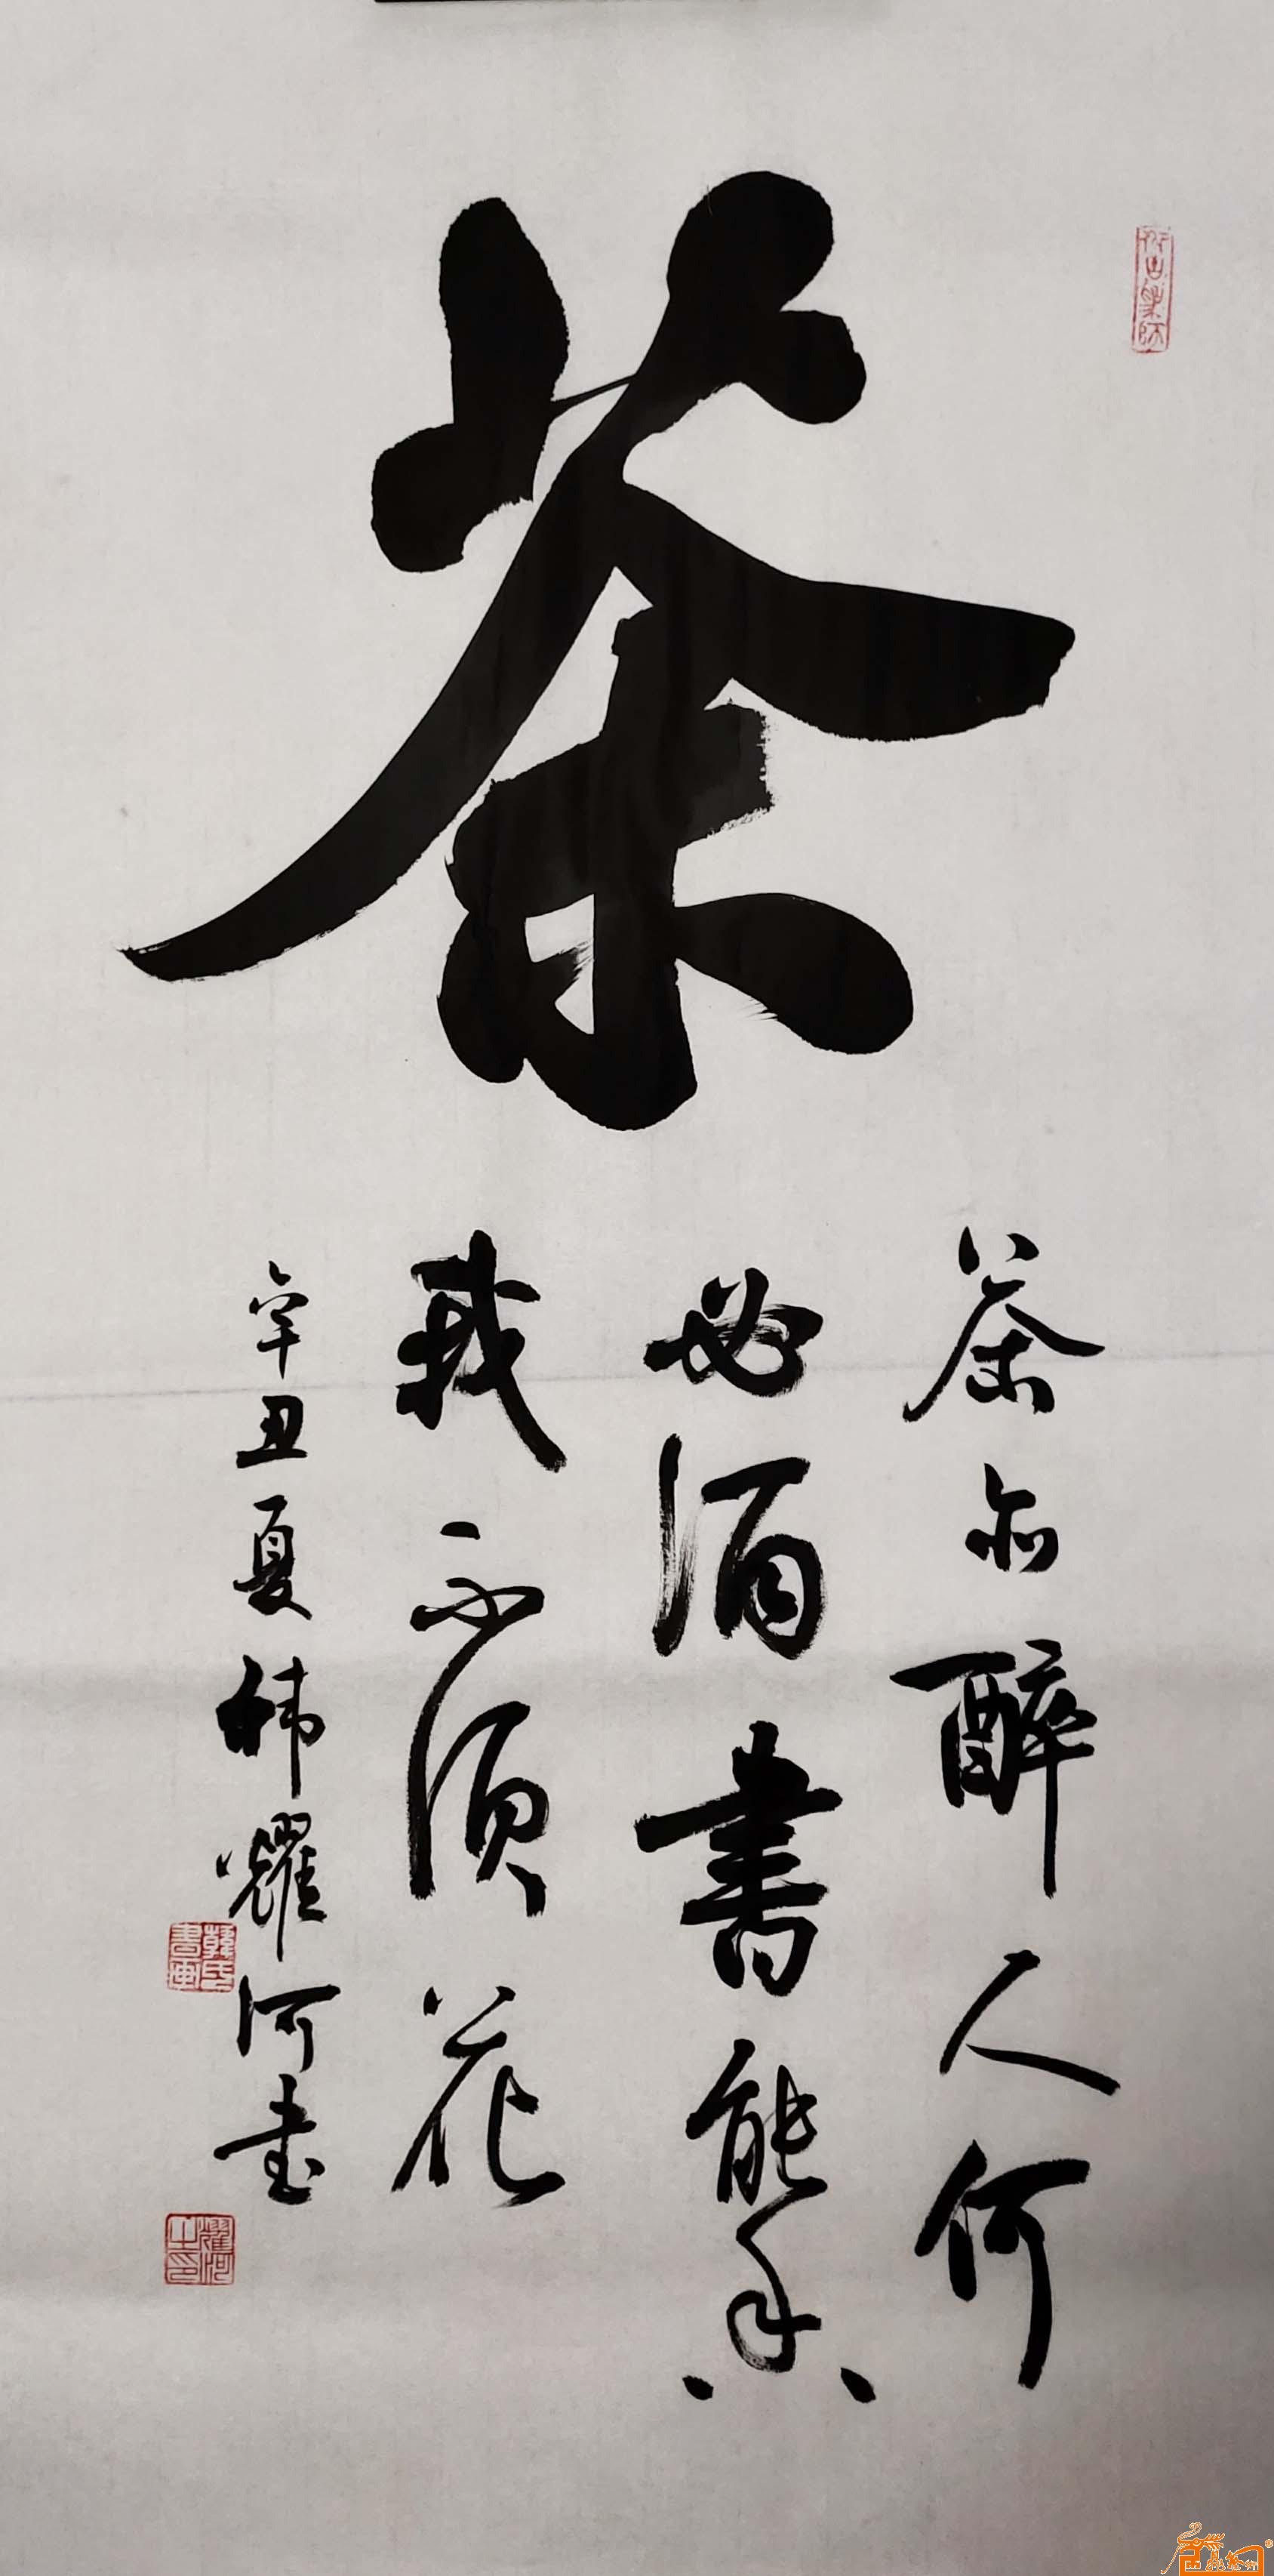 茶
茶亦醉人何
必酒書能香
我不須花
辛丑夏韩耀河書
韓氏書画
耀河之印